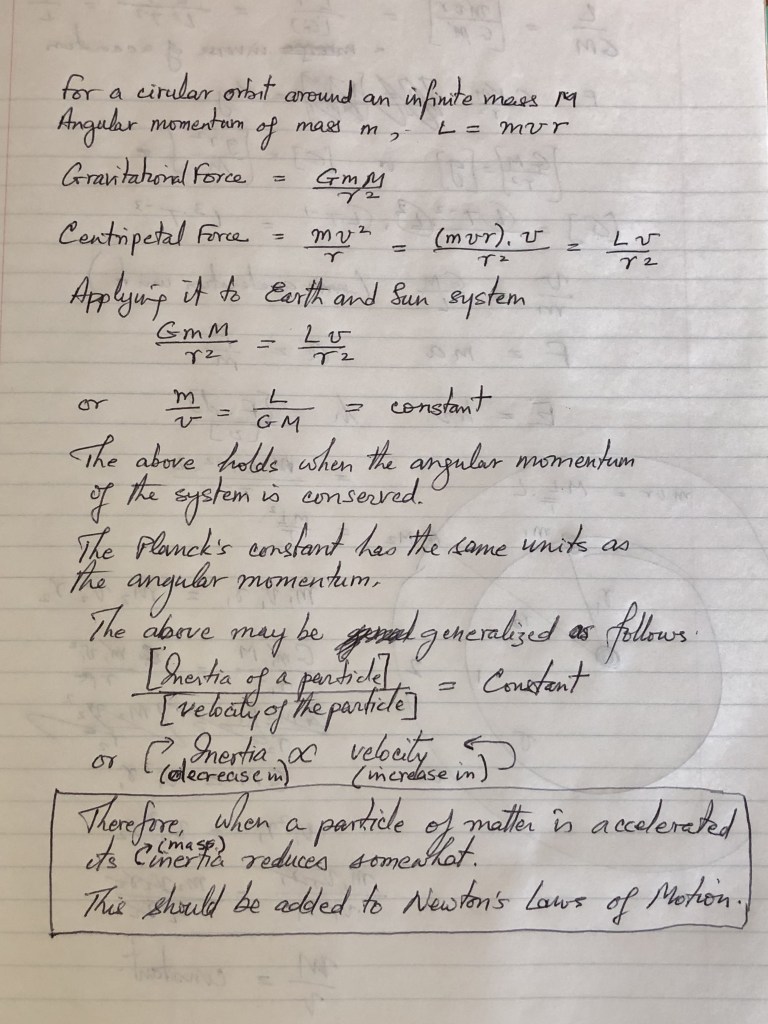 For a cirular orbit around an infinite mass M
Angular momentum of mass m, L = mvr
Gravitational Force = GmM/r²
Centripetal Force = mv²/r = (mvr).v/r² = Lv/r²
Applying it to Earth and Sun system
GmM/r² = Lv/r²
or m/v = L/GM = constant
The above holds when the angular momentum
of the system is conserved.
The Planck's constant has the same units as
the angular momentum.
The above may be generalized as follows.
[Inertia of a particle]/[velocity of the particle] = Constant
or Inertia ∝ velocity
(decrease in) (increase in)
Therefore, when a particle of matter is accelerated
its (mass) inertia reduces somewhat.
This should be added to Newton's Laws of Motion.